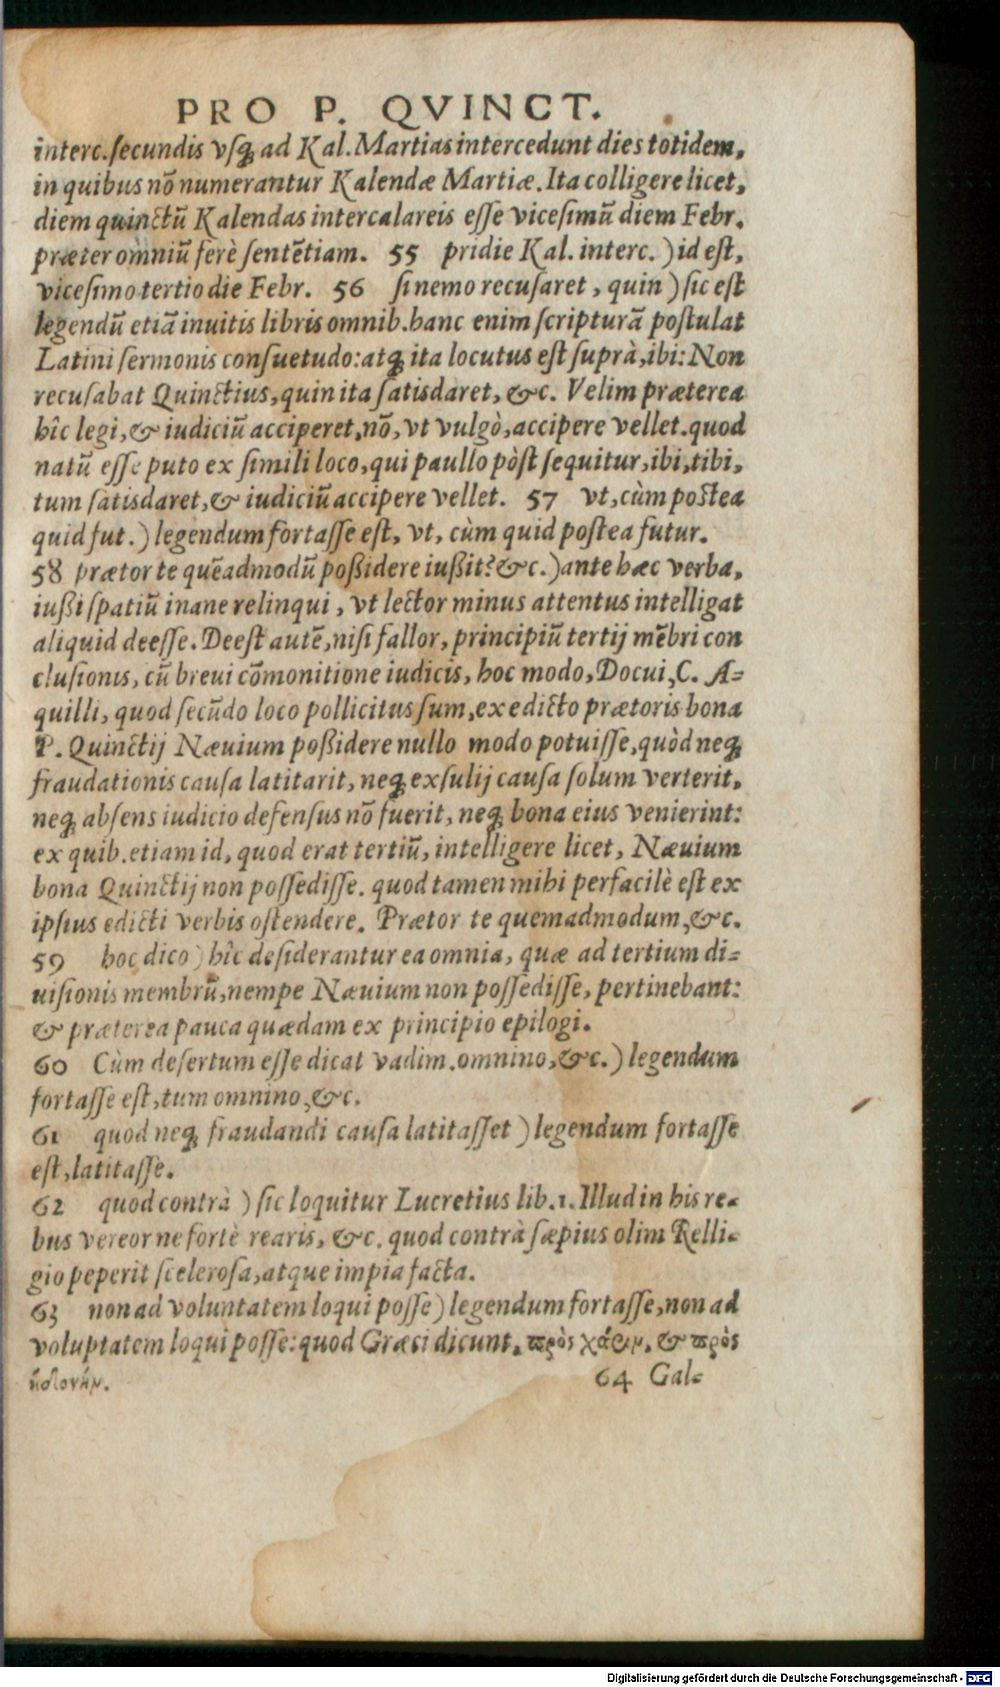 PRO P. QVINCT.
interc.ſecundis vſq; ad Kal.Martias intercedunt dies totidem,
in quibus nõ numerantur Kalendæ Martiæ. Ita colligere licet,
diem quinctũ Kalendas intercalareis eſſe viceſimũ diem Febr.
præter omniũ ferè ſentẽtiam. 55 pridie Kal. interc. ) id eſt,
viceſimo tertio die Febr. 56 ſi nemo recuſaret, quin ) ſic eſt
legendũ etiã inuitis libris omnib. hanc enim ſcripturã poſtulat
Latini ſermonis conſuetudo: atq; ita locutus eſt ſuprà, ibi: Non
recuſabat Quinctius, quin ita ſatisdaret, &c. Velim præterea
hîc legi, & iudiciũ acciperet, nõ, vt vulgò, accipere vellet. quod
natũ eſſe puto ex ſimili loco, qui paullo pòſt ſequitur, ibi, tibi,
tum ſatisdaret, & iudiciũ accipere vellet. 57 vt, cùm poſtea
quid fut. ) legendum fortaſſe eſt, vt, cùm quid poſtea futur.
58 prætor te quẽadmodũ poßidere iußit? &c. ) ante hæc verba,
iußi ſpatiũ inane relinqui, vt lector minus attentus intelligat
aliquid deeſſe. Deeſt autẽ, niſi fallor, principiũ tertij mẽbri con
cluſionis, cũ breui cõmonitione iudicis, hoc modo, Docui, C. A-
quilli, quod ſecũdo loco pollicitus ſum, ex edicto prætoris bona
P. Quinctij Næuium poßidere nullo modo potuiſſe, quòd neq;
fraudationis cauſa latitarit, neq; exſulij cauſa ſolum verterit,
neq; abſens iudicio defenſus nõ fuerit, neq; bona eius venierint:
ex quib. etiam id, quod erat tertiũ, intelligere licet, Næuium
bona Quinctij non poſſediſſe. quod tamen mihi perfacilè eſt ex
ipſius edicti verbis oſtendere. Prætor te quemadmodum, &c.
59 hoc dico ) hîc deſiderantur ea omnia, quæ ad tertium di-
uiſionis membrũ, nempe Næuium non poſſediſſe, pertinebant:
& præterea pauca quædam ex principio epilogi.
60 Cùm deſertum eſſe dicat vadim. omnino, &c. ) legendum
fortaſſe eſt, tum omnino, &c.
61 quod neq; fraudandi cauſa latitaſſet ) legendum fortaſſe
eſt, latitaſſe.
62 quod contrà ) ſic loquitur Lucretius lib. 1. Illud in his re-
bus vereor ne fortè rearis, &c. quod contrà ſæpius olim Relli-
gio peperit ſceleroſa, atque impia facta.
63 non ad voluntatem loqui poſſe) legendum fortaſſe, non ad
voluptatem loqui poſſe: quod Græci dicunt, πρὸς χάριν, & πρὸς
ἡδονήν. 64 Gal-
Digitalisierung gefördert durch die Deutsche Forschungsgemeinschaft - DFG